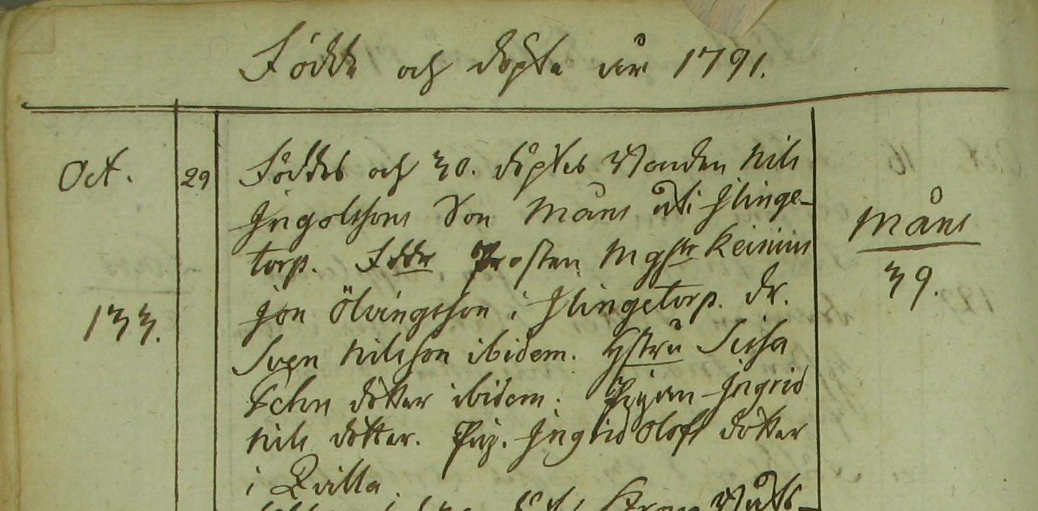 Födde och döpte år 1791.
Oct. 29 Föddes och 30. döptes Bonden Nils
Ingolssons Son Måns uti Slinge-
torp. Fddr Prosten Mgstr
Måns
39.
133.
Jon i Slingetorp. Dr.
Sven Nilsson ibidem. Hstru Sissa
dotter ibidem. Pigan Ingrid
Nils dotter. Pig. Ingrid Olofs dotter
i Qvilla